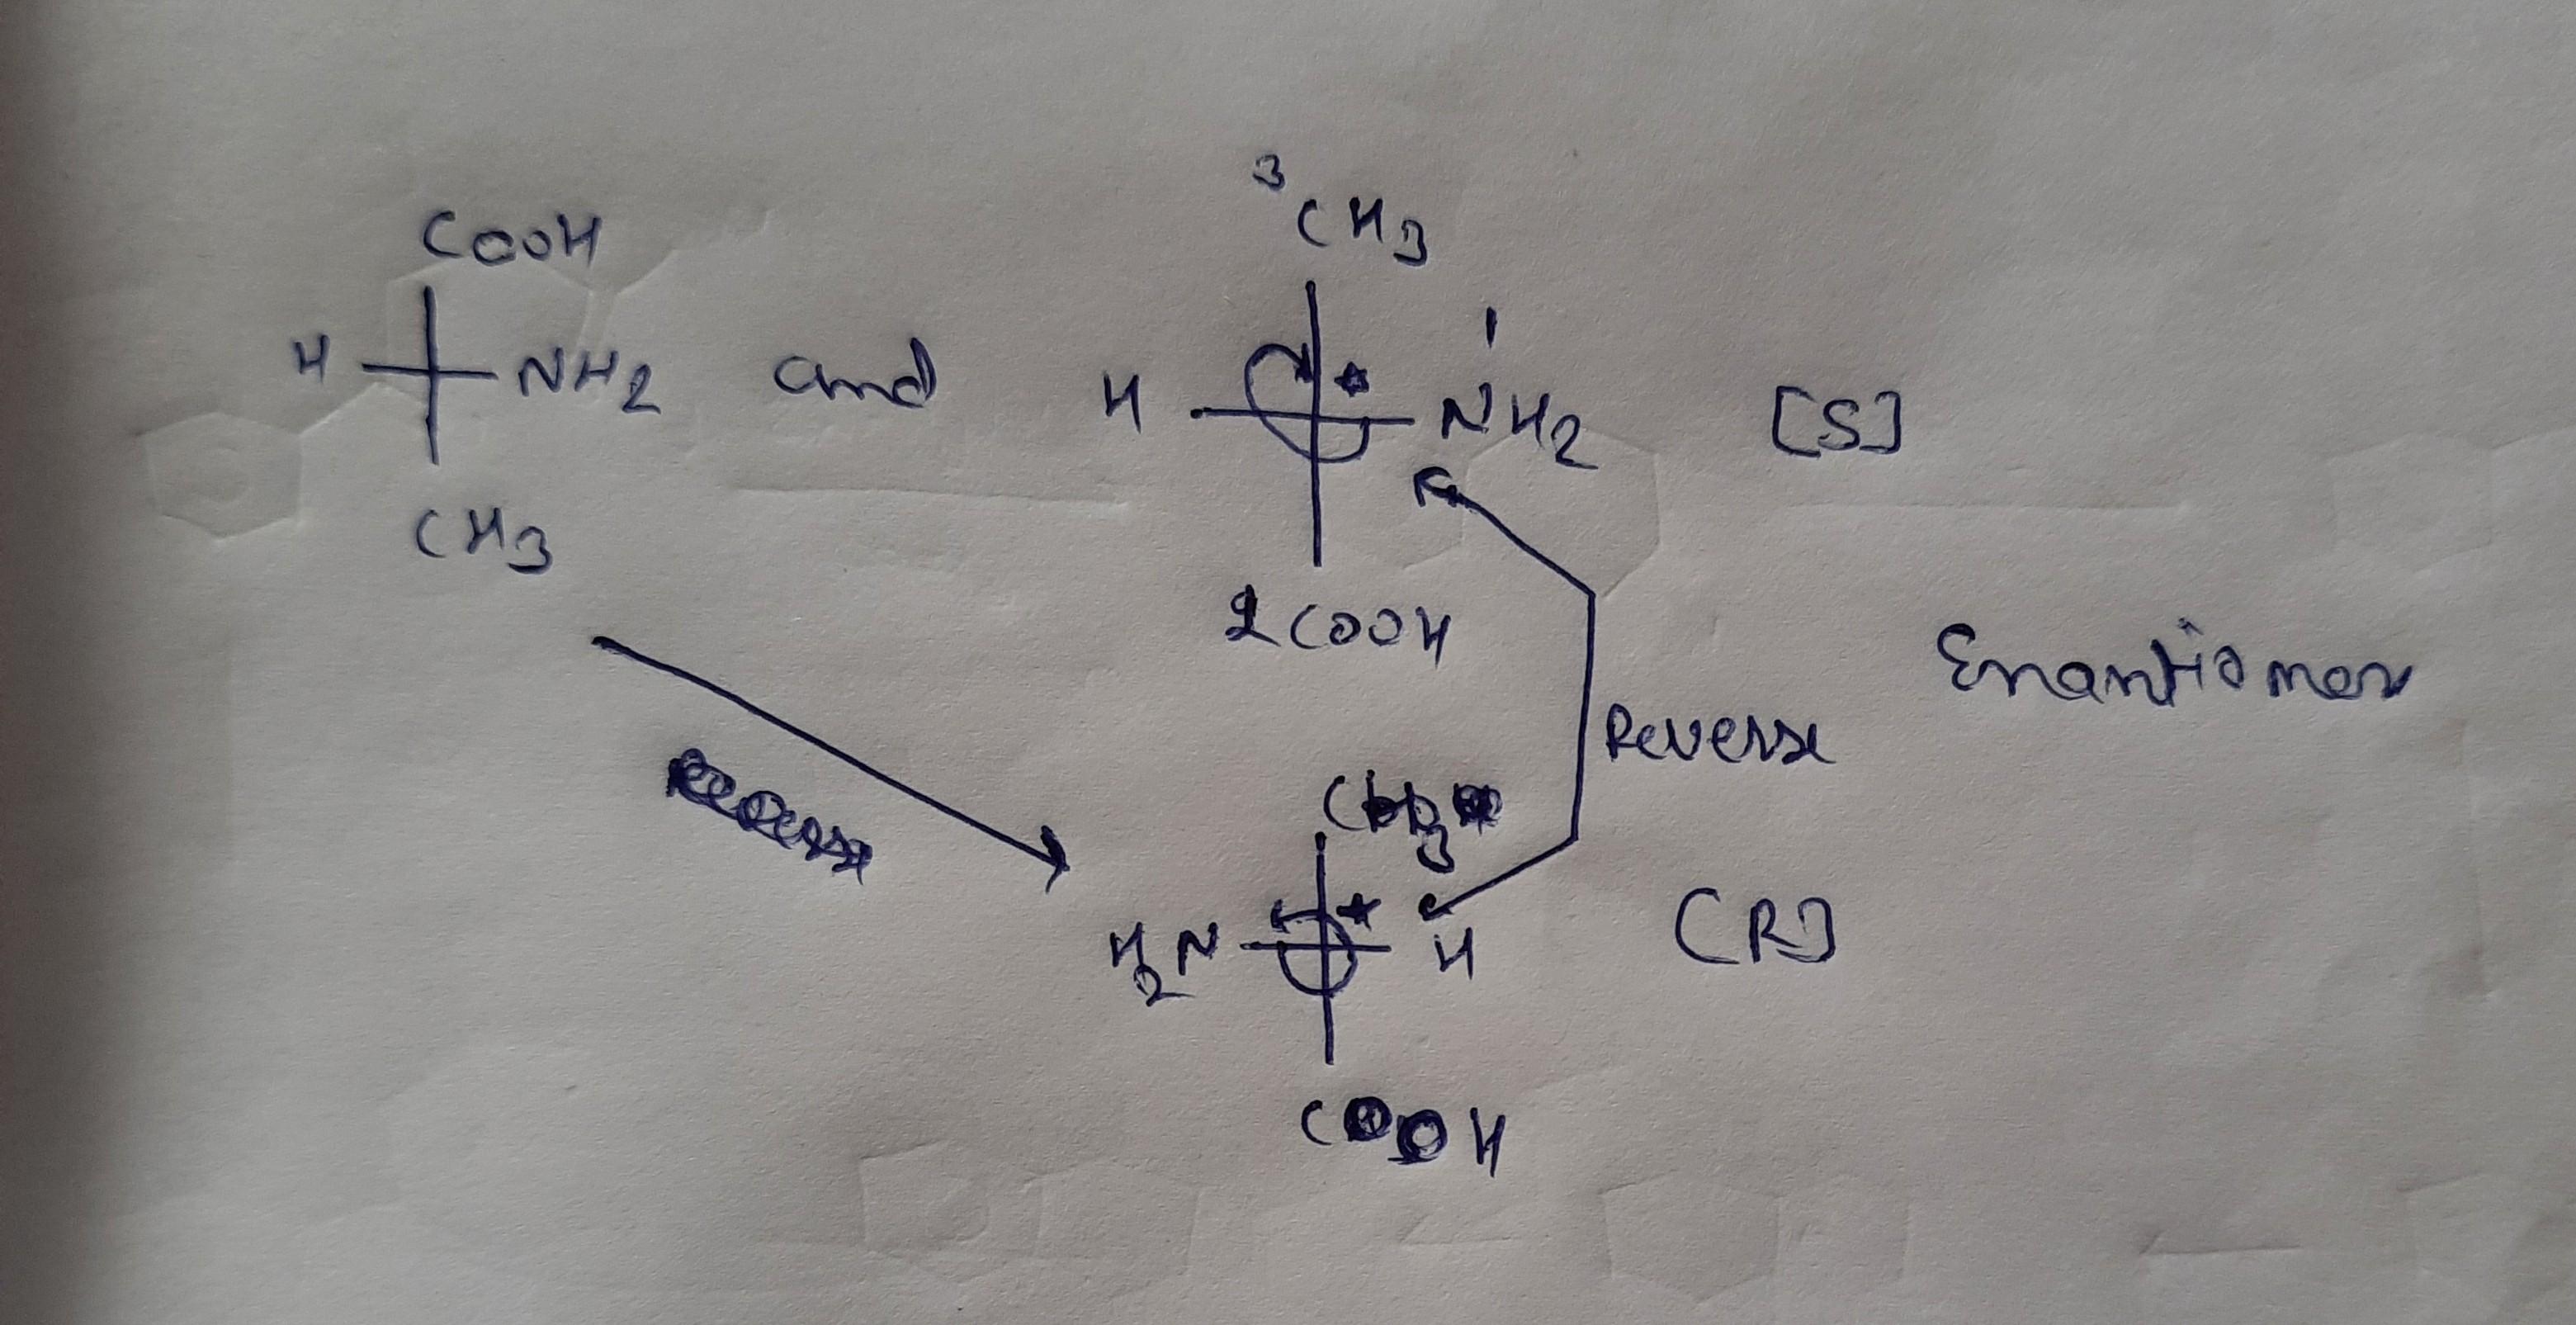 COOH
H NH2
CH3
and
3
CH3
1
H NH2
2 COOH
[S]
Reverse
Enantiomer
H2N H
COOH
[R]